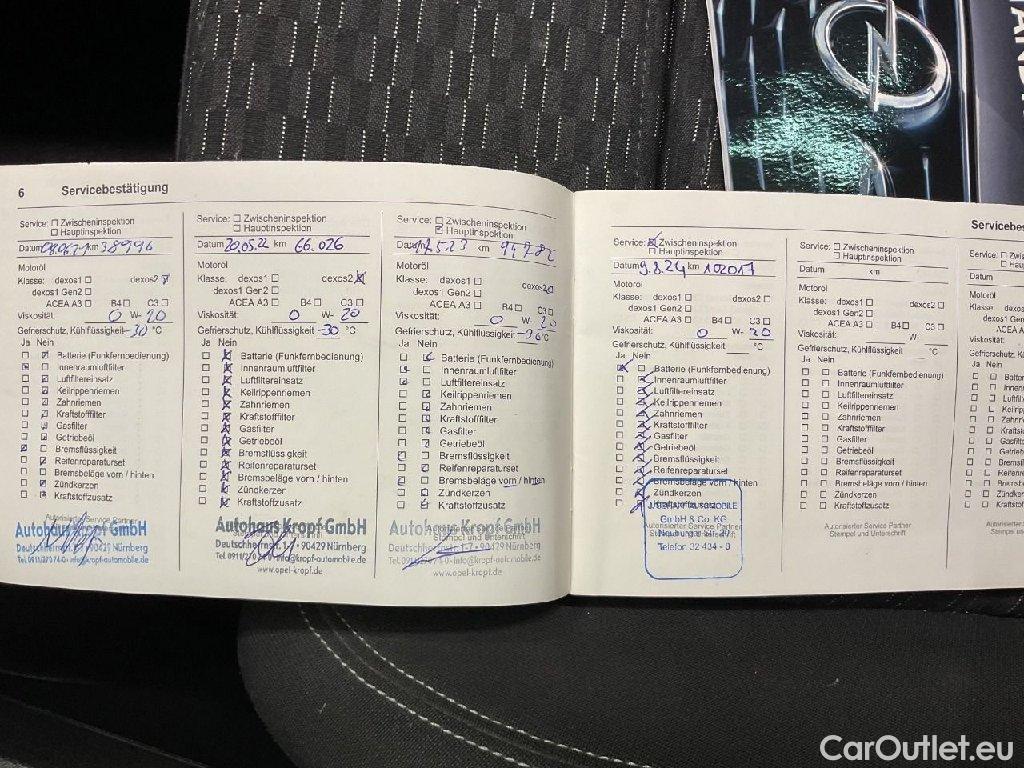 6 Servicebestätigung
Service: Zwischeninspektion
Hauptinspektion
Datum km 38996
Motoröl
Klasse: dexos1 dexos2
dexos1 Gen2
ACEA A3 B4 C3
Viskosität: 0 W- 20
Gefrierschutz, Kühlflüssigkeit -30 °C
Ja Nein
Batterie (Funkfernbedienung)
Innenraumluftfilter
Luftfiltereinsatz
Keilrippenriemen
Zahnriemen
Kraftstofffilter
Gasfilter
Getriebeöl
Bremsflüssigkeit
Reifenreparaturset
Bremsbeläge vorn / hinten
Zündkerzen
Kraftstoffzusatz
Autorisierter Service Partner
Autohaus Kropf GmbH
Deutschherrnstr. 1-7 • 90429 Nürnberg
Service: Zwischeninspektion
Hauptinspektion
Datum 20.05.22 km 66.026
Motoröl
Klasse: dexos1 dexos2
dexos1 Gen2
ACEA A3 B4 C3
Viskosität: 0 W- 20
Gefrierschutz, Kühlflüssigkeit -30 °C
Ja Nein
Batterie (Funkfernbedienung)
Innenraumluftfilter
Luftfiltereinsatz
Keilrippenriemen
Zahnriemen
Kraftstofffilter
Gasfilter
Getriebeöl
Bremsflüssigkeit
Reifenreparaturset
Bremsbeläge vorn / hinten
Zündkerzen
Kraftstoffzusatz
Autohaus Kropf GmbH
Deutschherrnstr. 1-7 • 90429 Nürnberg
www.opel-kropf.de
Service: Zwischeninspektion
Hauptinspektion
Datum km
Motoröl
Klasse: dexos1 Gen2
ACEA A3 B4 C3
Viskosität: 0 W 20
Gefrierschutz, Kühlflüssigkeit °C
Ja Nein
Batterie (Funkfernbedienung)
Innenraumluftfilter
Luftfiltereinsatz
Keilrippenriemen
Zahnriemen
Kraftstofffilter
Gasfilter
Getriebeöl
Bremsflüssigkeit
Reifenreparaturset
Bremsbeläge vorn / hinten
Zündkerzen
Kraftstoffzusatz
Autohaus Kropf GmbH
Stempel und Unterschrift
Deutschherrnstr. 1-7 • 90429 Nürnberg
www.opel-kropf.de
Service: Zwischeninspektion
Hauptinspektion
Datum 9.8.24 km 102017
Motoröl
Klasse: dexos1 dexos2
dexos1 Gen2
ACEA A3 B4 C3
Viskosität: 0 W- 20
Gefrierschutz, Kühlflüssigkeit °C
Ja Nein
Batterie (Funkfernbedienung)
Innenraumluftfilter
Luftfiltereinsatz
Keilrippenriemen
Zahnriemen
Kraftstofffilter
Gasfilter
Getriebeöl
Bremsflüssigkeit
Reifenreparaturset
Bremsbeläge vorn / hinten
Zündkerzen
GmbH & Co. KG
Autorisierter Service Partner
Telefon 32 434 - 0
Service: Zwischeninspektion
Hauptinspektion
Datum km
Motoröl
Klasse: dexos1 dexos2
dexos1 Gen2
ACEA A3 B4 C3
Viskosität: W
Gefrierschutz, Kühlflüssigkeit °C
Ja Nein
Batterie (Funkfernbedienung)
Innenraumluftfilter
Luftfiltereinsatz
Keilrippenriemen
Zahnriemen
Kraftstofffilter
Gasfilter
Getriebeöl
Bremsflüssigkeit
Reifenreparaturset
Bremsbeläge vorn / hinten
Zündkerzen
Kraftstoffzusatz
Autorisierter Service Partner
Stempel und Unterschrift
Motoröl
Klasse:
Viskosität:
Ja Nein
CarOutlet.eu